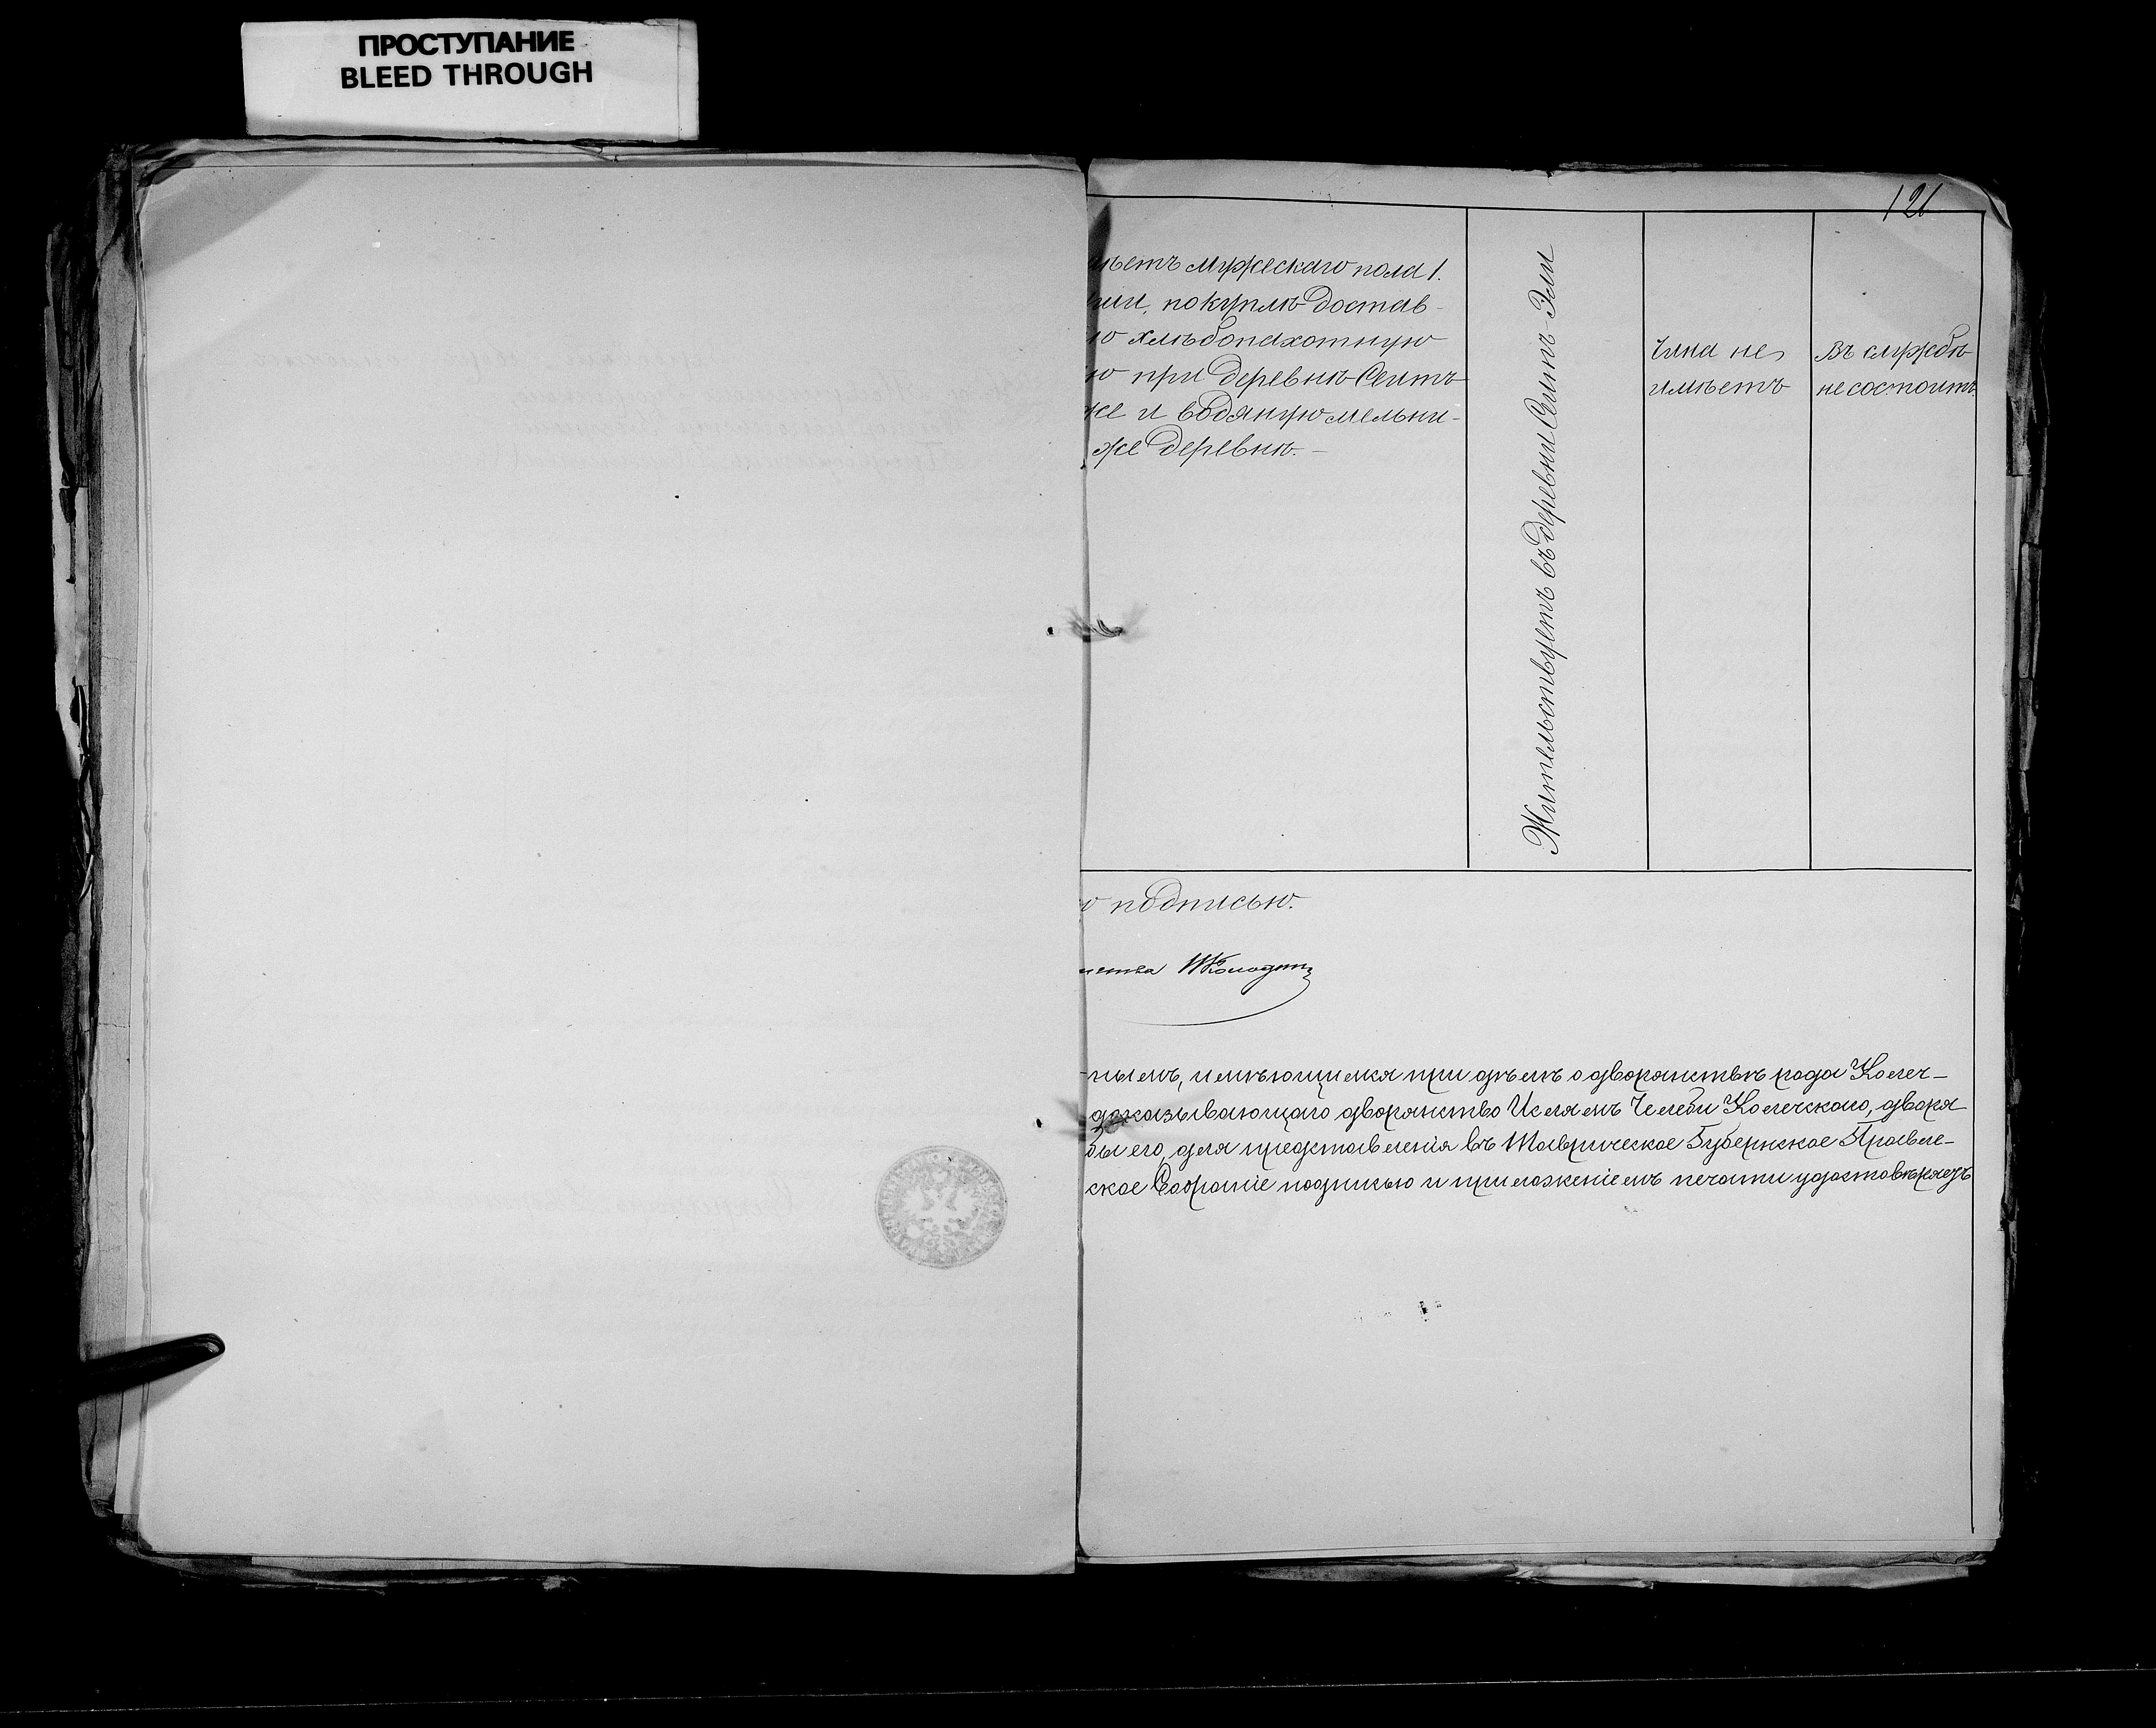 ПРОСТУПАНИЕ
BLEED THROUGH
121
мѣетъ мужескаго пола 1.
ми, по куплѣ достав-
ю хлѣбопахотную
ю при деревнѣ Сеитъ
же и водяную мельни-
же деревнѣ.-
Жительствуетъ въ деревни Сеитъ-Эли
Чина не
имѣетъ
Въ службѣ
не состоитъ.
ю подписью.
нымъ, имѣющимся при дѣлѣ о дворянствѣ рода Колеч-
доказывающаго дворянство Ислямъ Челеби Колечскаго, дворя
бы его, для представленія въ Таврическое Губернское Правле-
ское Собраніе подписью и приложеніемъ печати удостовѣряетъ